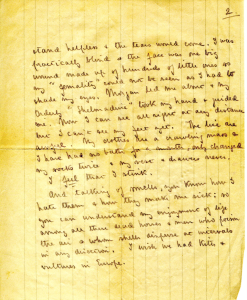 2
stand helpless & the tears would come. I was
practically blind & the face was one big
wound made up of hundreds of little ones so
my "comeliness" could not be seen as I had to
shade my eyes. Morgan led me alone & my
Orderly "Helmadine" took my hand & guided
me. Now I can see all right at any distance
but I can't see my feet yet. The lice are
awful. My clothes are a crawling mass &
I have had no bath for a month, only changed
my socks twice & my vest & drawers never.
I feel that I stink.
And talking of smells, you know how I
hate them & how they make me sick, so
you can understand my enjoyment of legs
among all these dead horses & men who poison
the air & whom shells disperse at intervals
in any direction. I wish we had kites &
vultures in Europe.